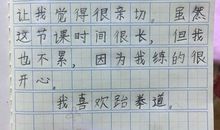 让我觉得很亲切。虽然
这节课时间很长，但我
也不累，因为我练的很
开心。
我喜欢跆拳道。